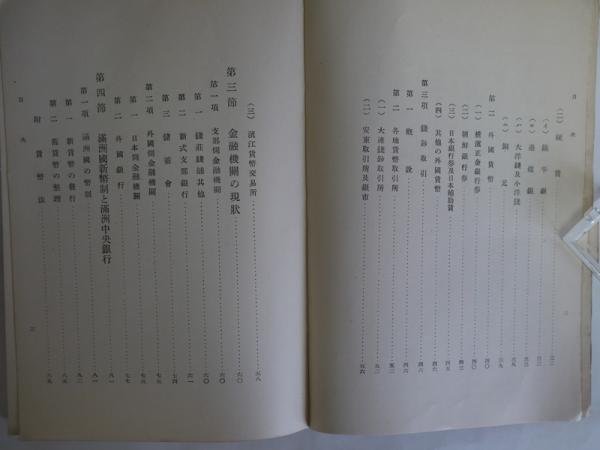 目次
(二) 硬貨
(イ) 鎮平銀
(ロ) 過爐銀
(ハ) 大洋錢及小洋錢
(ニ) 銅元 三九
第二 外國貨幣 四〇
(一) 橫濱正金銀行券 四〇
(二) 朝鮮銀行券 四三
(三) 日本銀行券及日本補助貨 四五
(四) 其他の外國貨幣 四六
第三項 錢鈔取引 四六
第一 概說 四六
第二 各地貨幣取引所 五二
(一) 大連錢鈔取引所 五二
(二) 安東取引所及銀市 五六
(三) 濱江貨幣交易所 五八
第三節 金融機關の現狀 六〇
第一項 支那側金融機關 六〇
第一 錢莊錢舖其他 六〇
第二 新式支那銀行 六一
第三 儲蓄會 七四
第二項 外國側金融機關 七五
第一 日本側金融機關 七五
第二 外國銀行 七七
第四節 滿洲國新幣制と滿洲中央銀行 八一
第一項 滿洲國の幣制 八一
第一 新貨幣の發行 八二
第二 舊貨幣の整理 八五
附 貨幣法 八九
目次
三